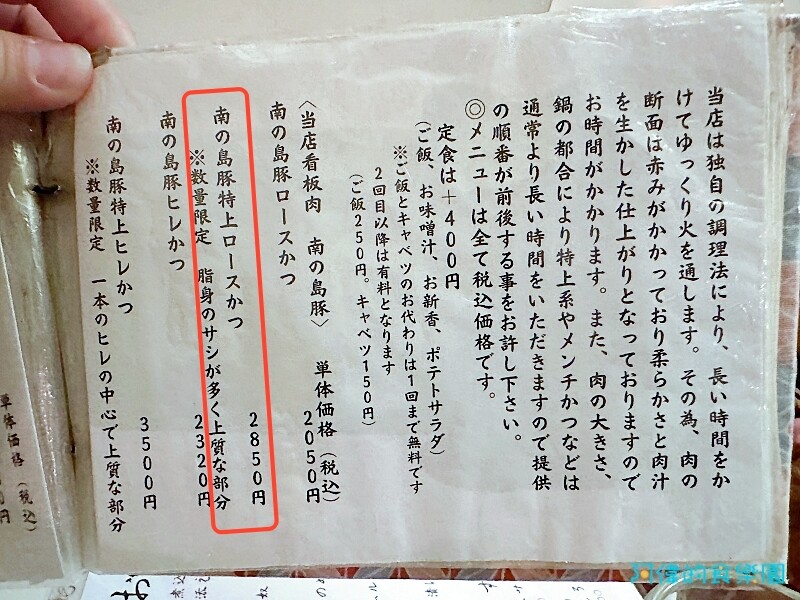 当店は独自の調理法により、長い時間をか
けてゆっくり火を通します。その為、肉の
断面は赤みがかかっており柔らかさと肉汁
を生かした仕上がりとなっておりますので
お時間がかかります。また、肉の大きさ、
鍋の都合により特上系やメンチかつなどは
通常より長い時間をいただきますので提供
の順番が前後する事をお許し下さい。
◎メニューは全て税込価格です。
定食は+400円
(ご飯、お味噌汁、お新香、ポテトサラダ)
※ご飯とキャベツのお代わりは1回まで無料です
2回目以降は有料となります
(ご飯250円。キャベツ150円)
〈当店看板肉 南の島豚〉 単体価格(税込)
南の島豚ロースかつ 2050円
南の島豚特上ロースかつ 2850円
※数量限定 脂身のサシが多く上質な部分
南の島豚ヒレかつ 2320円
南の島豚特上ヒレかつ 3500円
※数量限定 一本のヒレの中心で上質な部分
単体価格(税込)
円